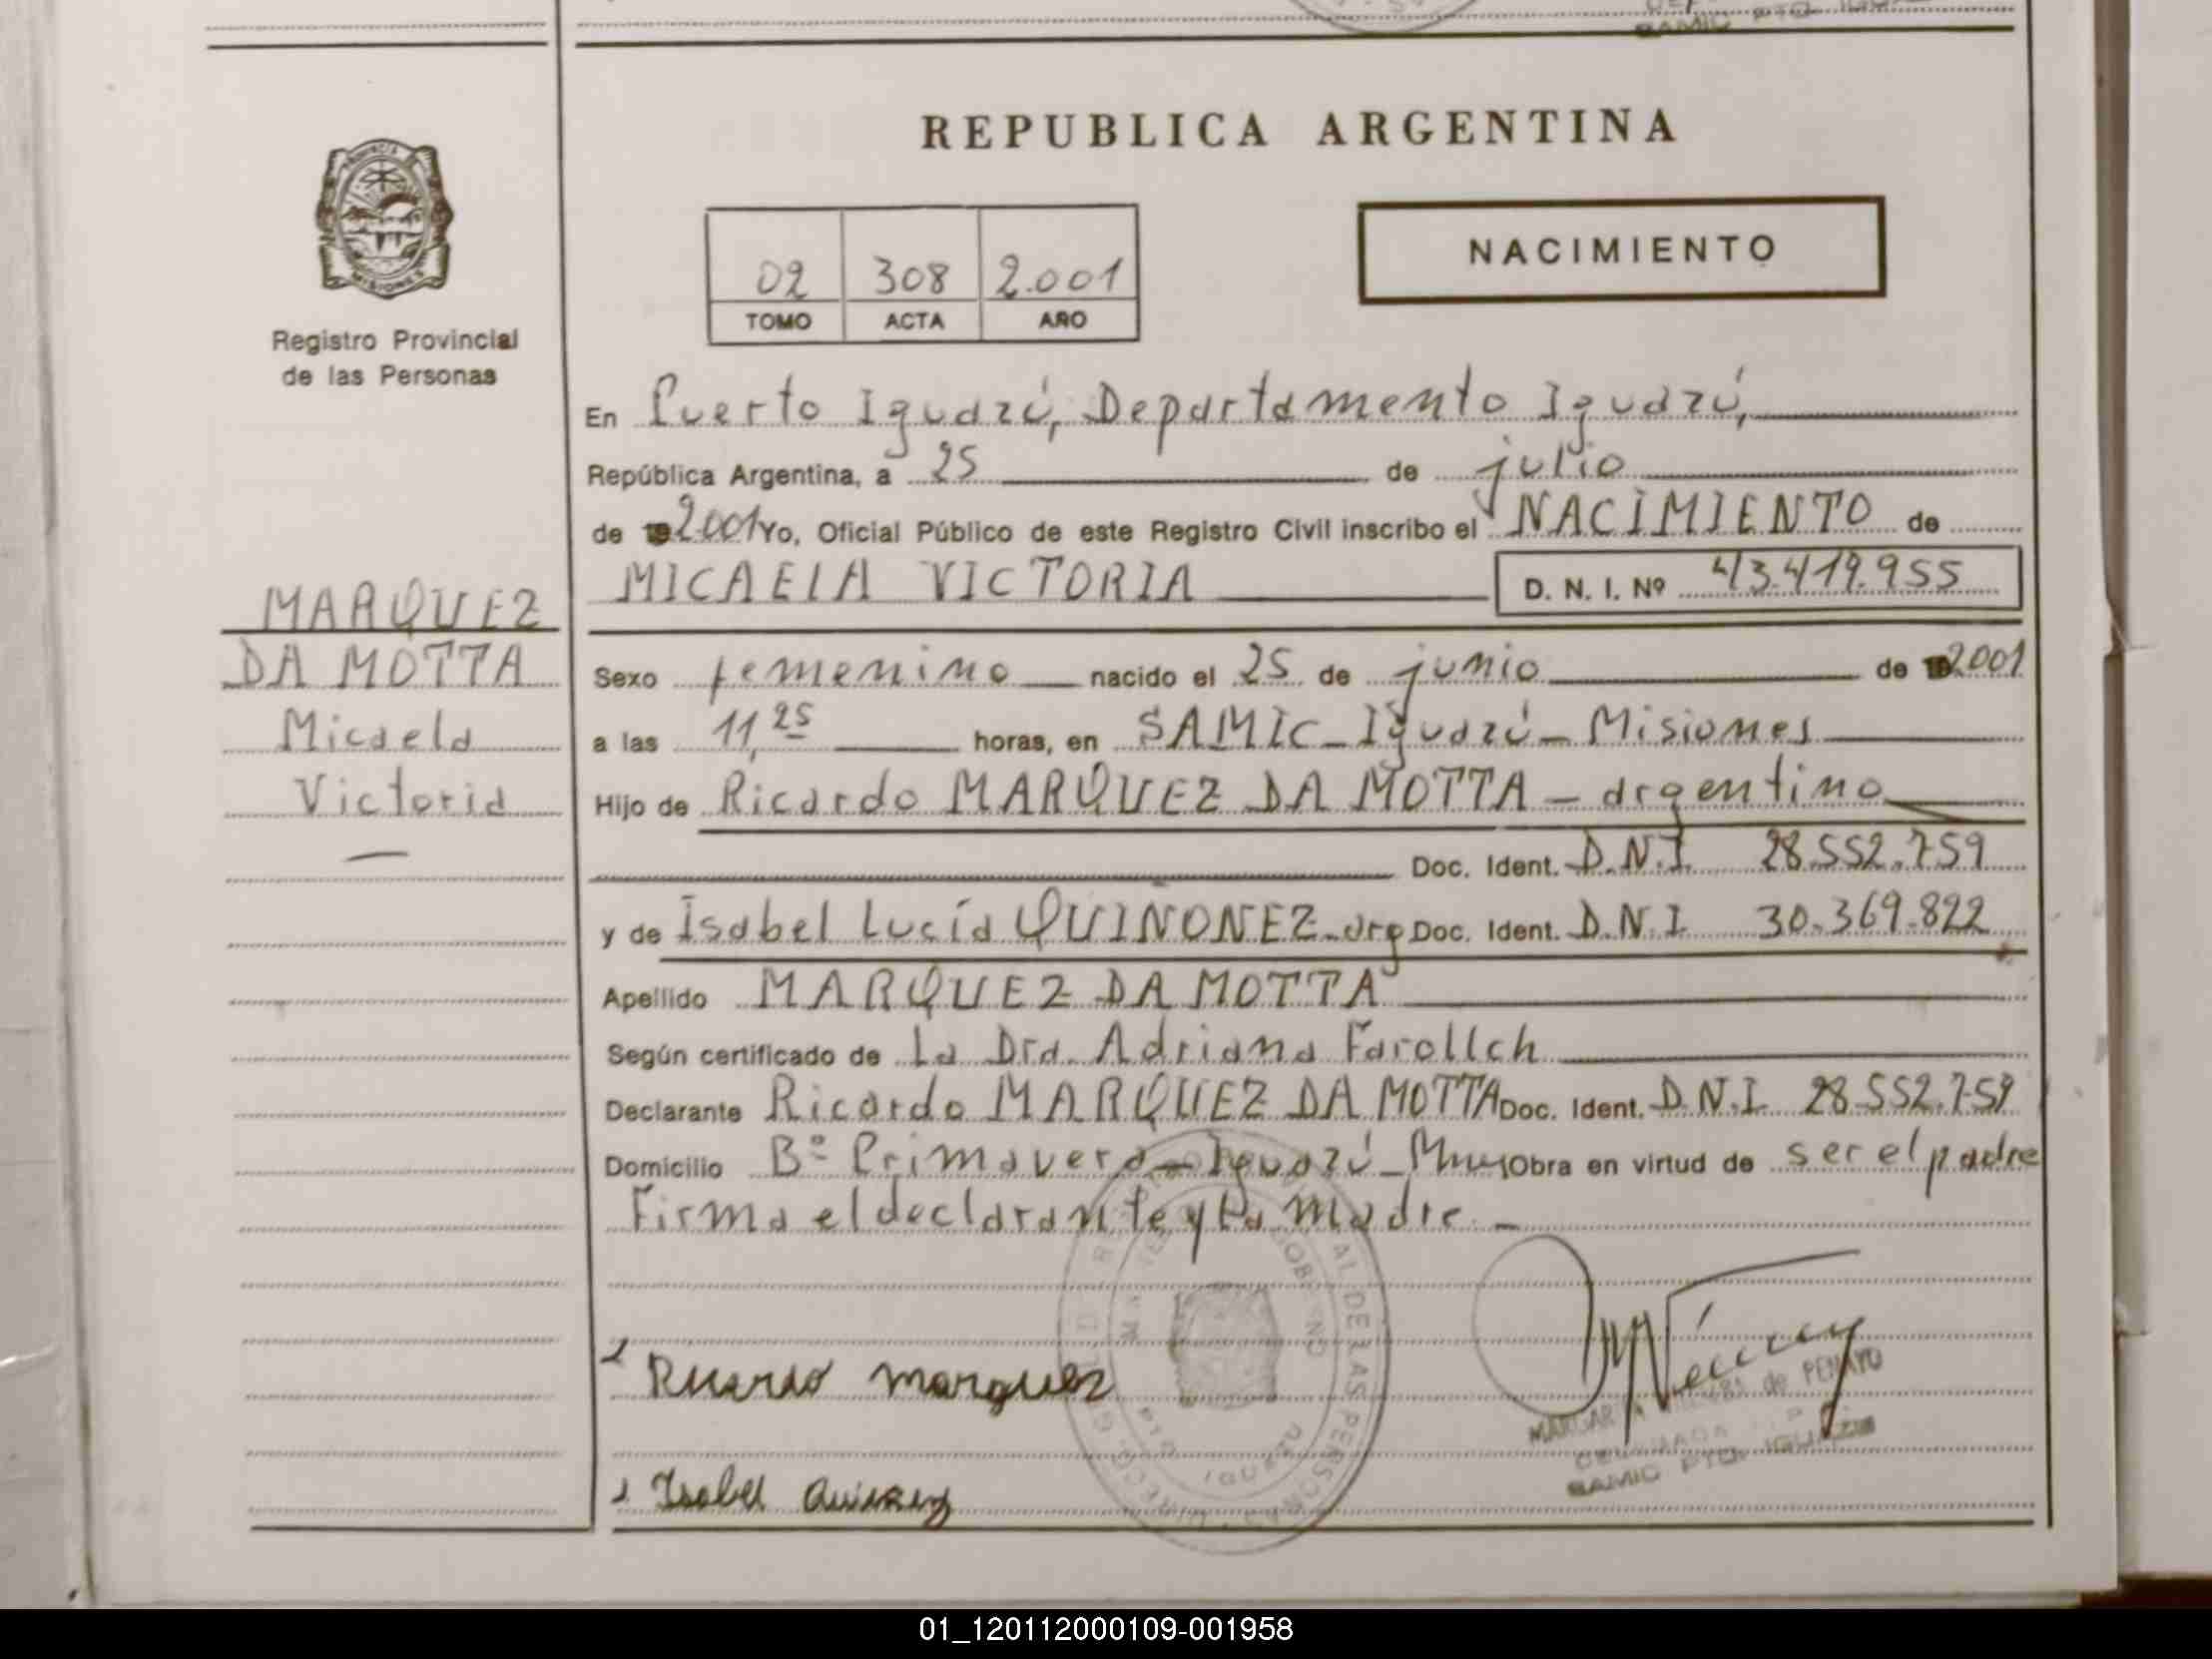 REPUBLICA ARGENTINA
PROVINCIA
MISIONES
Registro Provincial
de las Personas
02 308 2.001
TOMO ACTA AÑO
NACIMIENTO
En Puerto Iguazú, Departamento Iguazú,
República Argentina, a 25 de julio
de 2001 Yo, Oficial Público de este Registro Civil inscribo el NACIMIENTO de
MICAELA VICTORIA D. N. I. Nº 43.419.955
MARQUEZ
DA MOTTA
Micaela
Victoria
Sexo femenino nacido el 25 de junio de 2001
a las 11,25 horas, en SAMIC - Iguazú - Misiones
Hijo de Ricardo MARQUEZ DA MOTTA - argentino
Doc. Ident. D.N.I 28.552.759
y de Isabel Lucía QUIÑONEZ - arg Doc. Ident. D.N.I 30.369.822
Apellido MARQUEZ DA MOTTA
Según certificado de La Dra. Adriana Farollch
Declarante Ricardo MARQUEZ DA MOTTA Doc. Ident. D.N.I 28.552.759
Domicilio Bº Primavera - Iguazú - Obra en virtud de ser el padre
Firma el declarante y la madre. -
Ricardo Marquez
MARGARITA de PENAYO
DELEGADA
SAMIC PTO. IGUAZU
Isabel
01_120112000109-001958